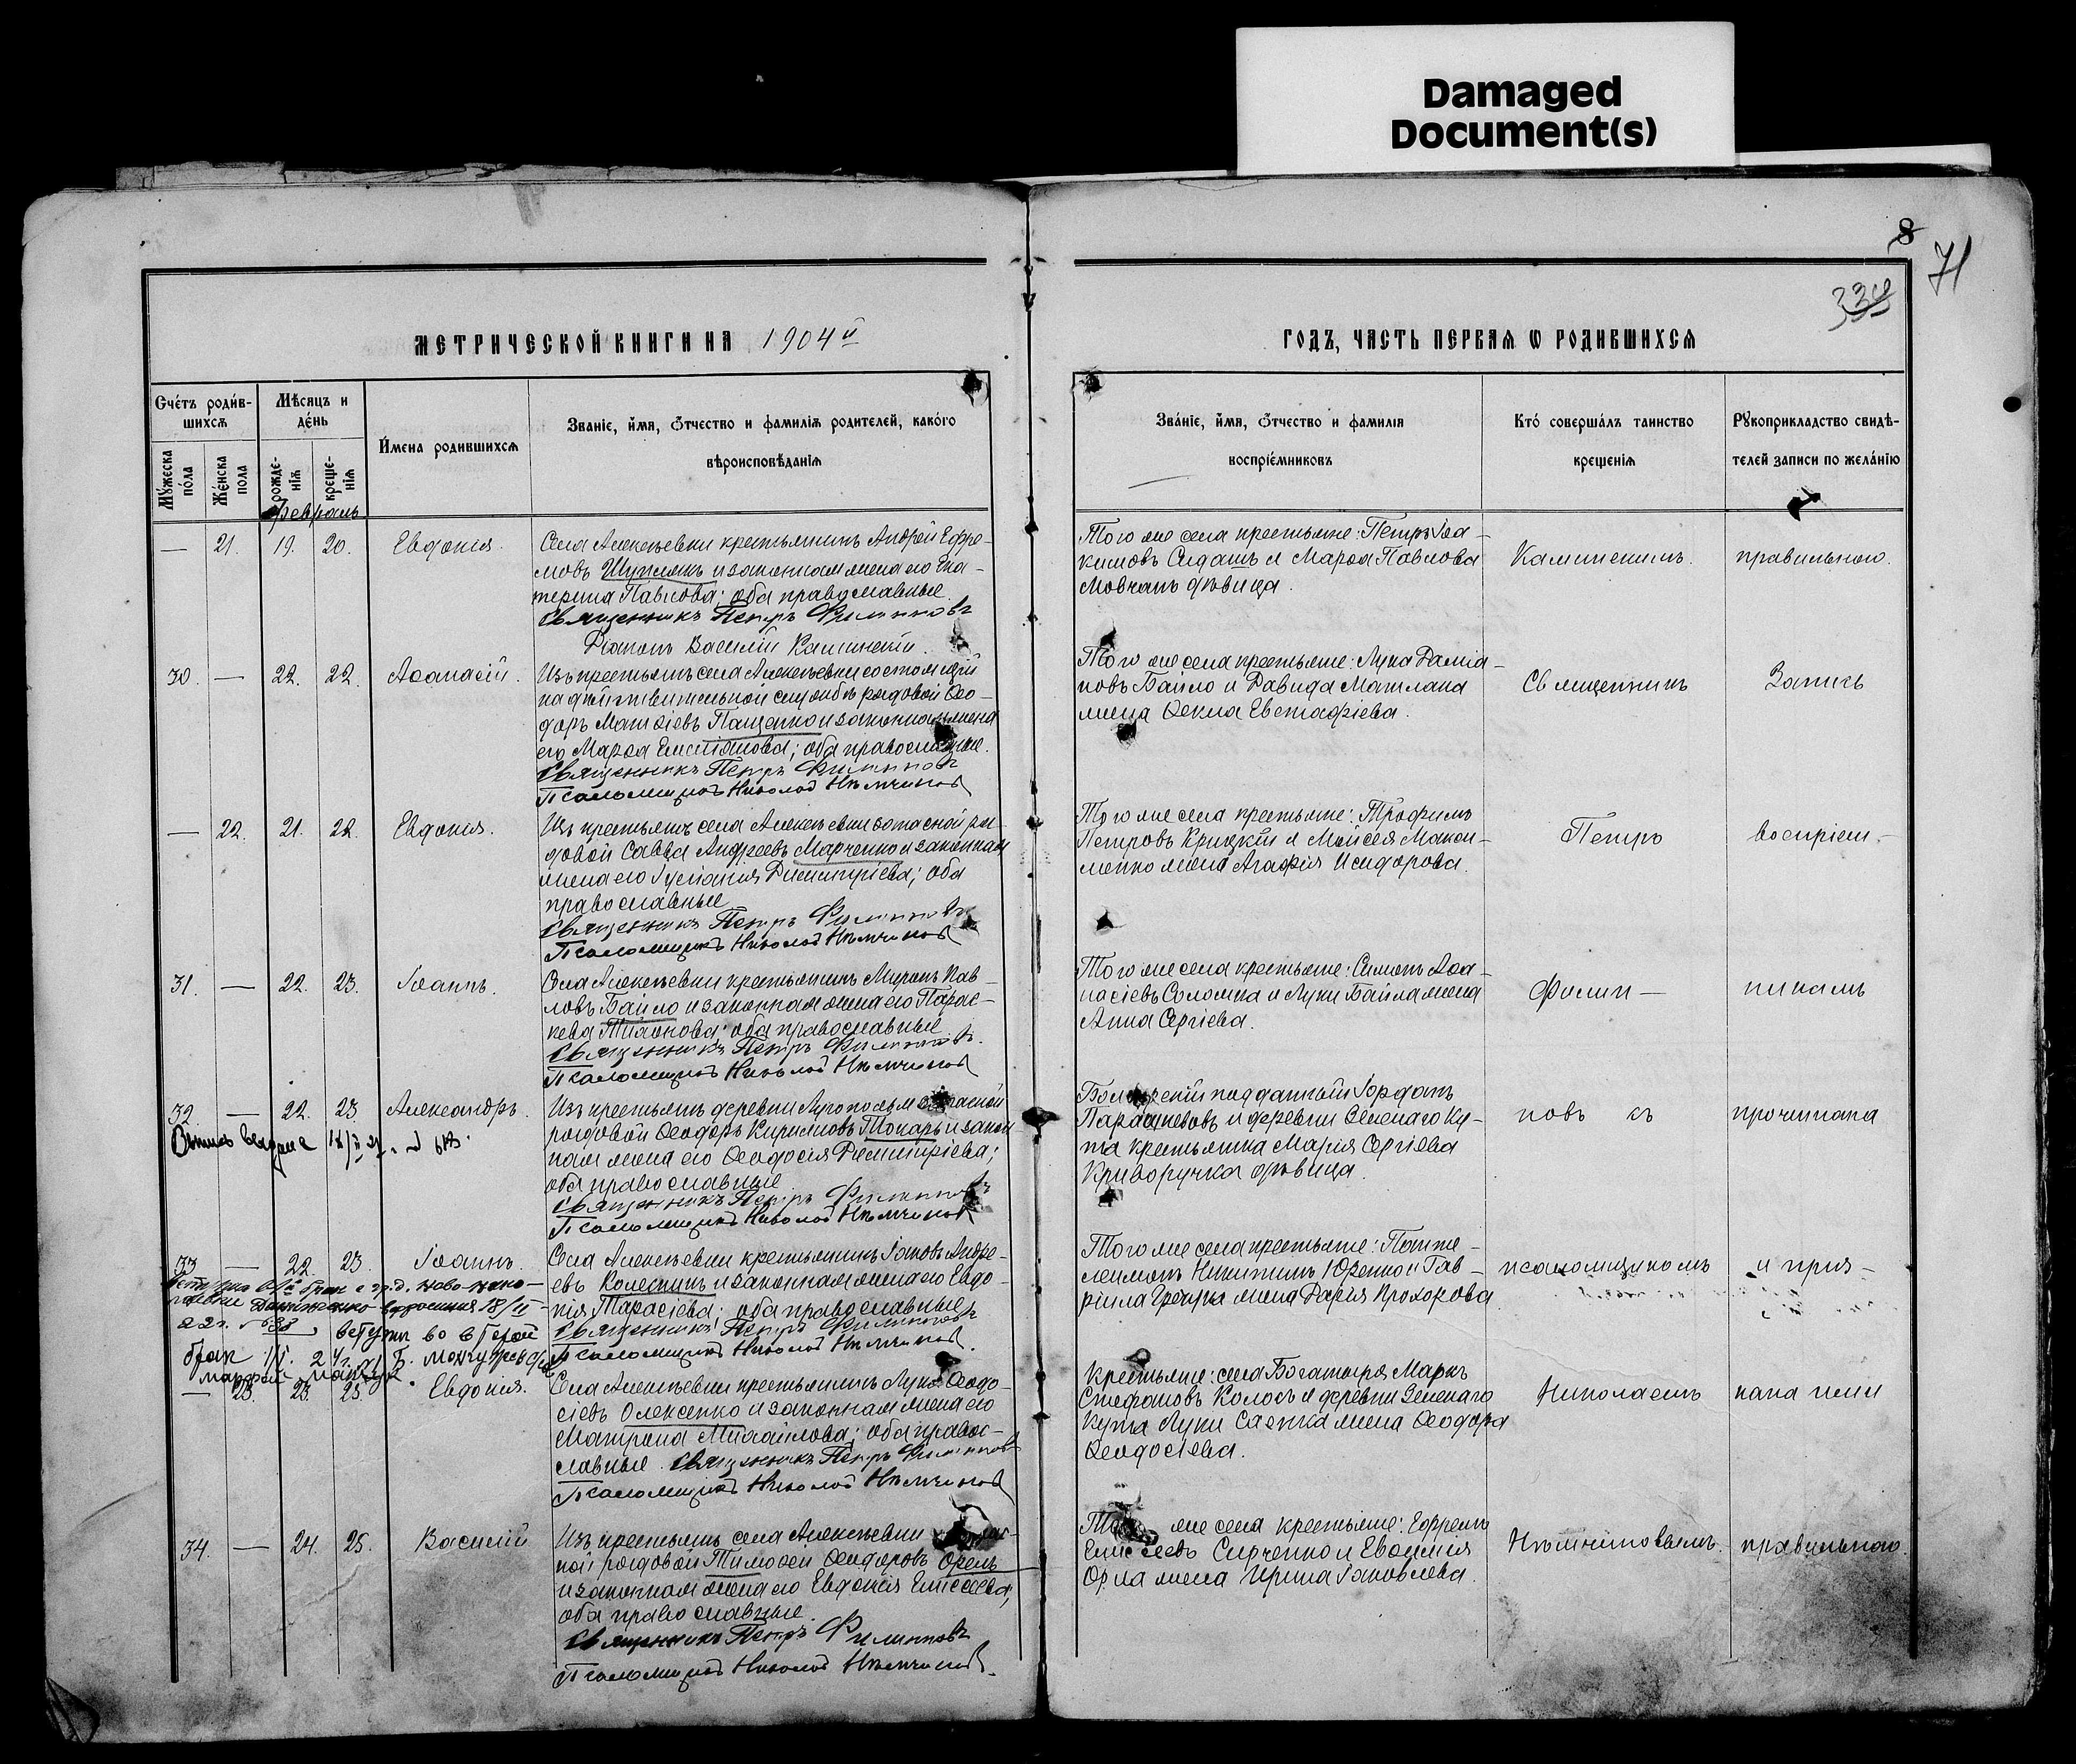 Damaged
Document(s)
8
71
334
МЕТРИЧЕСКОЙ КНИГИ НА 1904й
ГОДЪ, ЧАСТЬ ПЕРВАЯ Ѡ РОДИВШИХСЯ
Счетъ родившихся
Мѣсяцъ и день
Имена родившихся
Званіе, имя, отчество и фамилія родителей, какого вѣроисповѣданія
Званіе, имя, отчество и фамилія воспріемниковъ
Кто совершалъ таинство крещенія
Рукоприкладство свидѣтелей записи по желанію
Мужеска пола
Женска пола
рожденія
крещенія
Февраль
— 21. 19. 20. Евдокія.
Села Алексѣевки крестьянинъ Андрей Ефре-
мовъ Шупликъ и законная жена его Ека-
терина Павлова; оба православные.
Священникъ Петръ Филипповъ
Діаконъ Василій Калинскій.
Того же села крестьяне: Петръ Іоа-
кимовъ Сидашъ и Марѳа Павлова
Мовчанъ дѣвица.
Калинискимъ.
правильного.
30. — 22. 22. Аѳанасій.
Изъ крестьянъ села Алексѣевки состоящій
на дѣйствительной службѣ рядовой Ѳео-
доръ Матвіевъ Пащенко и законная жена
его Марѳа Емеліанова; оба православные.
Священникъ Петръ Филипповъ
Псаломщикъ Николай Нѣмчиновъ
Того же села крестьяне: Лука Даміа-
новъ Байло и Давида Маглана
жена Ѳекла Евстафіева.
Священникъ
Запись
— 22. 21. 22. Евдокія.
Изъ крестьянъ села Алексѣевки запасной ря-
довой Савва Андреевъ Марченко и законная
жена его Іуліанія Димитріева; оба
православные
Священникъ Петръ Филипповъ
Псаломщикъ Николай Нѣмчиновъ
Того же села крестьяне: Трофимъ
Петровъ Крицкій и Моисея Макси-
менко жена Агафія Исидорова.
Петръ
воспріем-
31. — 22. 23. Іоаннъ.
Села Алексѣевки крестьянинъ Миронъ Пав-
ловъ Байло и законная жена его Парас-
кева Тихонова; оба православные
Священникъ Петръ Филипповъ.
Псаломщикъ Николай Нѣмчиновъ
Того же села крестьяне: Симеонъ Аѳа-
насіевъ Соломка и Луки Байла жена
Анна Сергіева.
Филип-
никамъ
32. — 22. 23. Александръ.
выдана
Изъ крестьянъ деревни запасной
рядовой Ѳеодоръ Кирилловъ Токарь и закон
ная жена его Ѳеодосія Димитріева;
оба православные
Священникъ Петръ Филипповъ
Псаломщикъ Николай Нѣмчиновъ
подданный Іорданъ
Парашкевовъ и деревни Зеленаго Ку-
та крестьянка Марія Сергіева
Криворучка дѣвица.
повъ съ
прочитана
33 — 22. 23. Іоаннъ.
брак с гр. д. Ново-
18/II
22г. №38 вступил во второй
брак
Села Алексѣевки крестьянинъ Іаковъ Андре-
евъ Колесникъ и законная жена его Евдо-
кія Тарасіева; оба православные
Священникъ Петръ Филипповъ
Псаломщикъ Николай Нѣмчиновъ.
Того же села крестьяне: Панте-
леимонъ Никитинъ Юренко и Гав-
ріила жена Дарія Прохорова
псаломщикомъ
и приз-
— 23. 23. 25. Евдокія.
Села Алексѣевки крестьянинъ Лука Ѳеодо-
сіевъ Олексенко и законная жена его
Матрона Михаилова; оба правос-
лавные. Священникъ Петръ Филипповъ
Псаломщикъ Николай Нѣмчиновъ
Крестьяне: села Богатыря Маркъ
Стефановъ Колосъ и деревни Зеленаго
Кута Луки Саенка жена Ѳеодора
Ѳеодосіева.
Николаемъ
нана ними
34. — 24. 25. Василій
Изъ крестьянъ села Алексѣевки
ной рядовой Тимоѳей Ѳеодоровъ Орелъ
и законная жена его Евдокія Елісеева;
оба православные.
Священникъ Петръ Филипповъ
Псаломщикъ Николай Нѣмчиновъ.
же села крестьяне: Ефремъ
Елисеевъ Сирченко и Евѳимія
Орла жена Ирина Іаковлева.
Нѣмчиновымъ.
правильного.